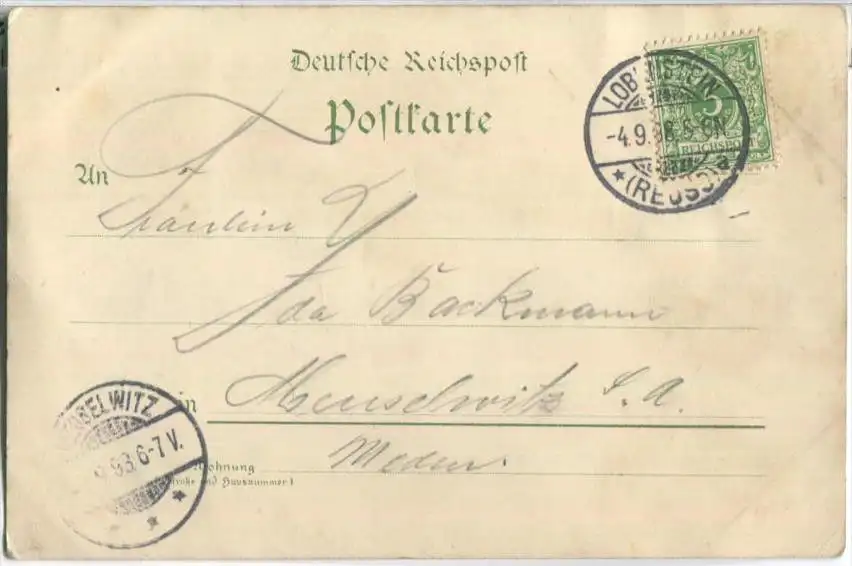 Deutsche Reichspost
Postkarte
LOBENSTEIN
-4.9.98.8-9N.
a
* (REUSS)
5
REICHSPOST
An
Fräulein
Ida Backmann
in Meuselwitz S. A.
Wohnung
(Straße und Hausnummer)
MEUSELWITZ
9.98.6-7V.
* * *